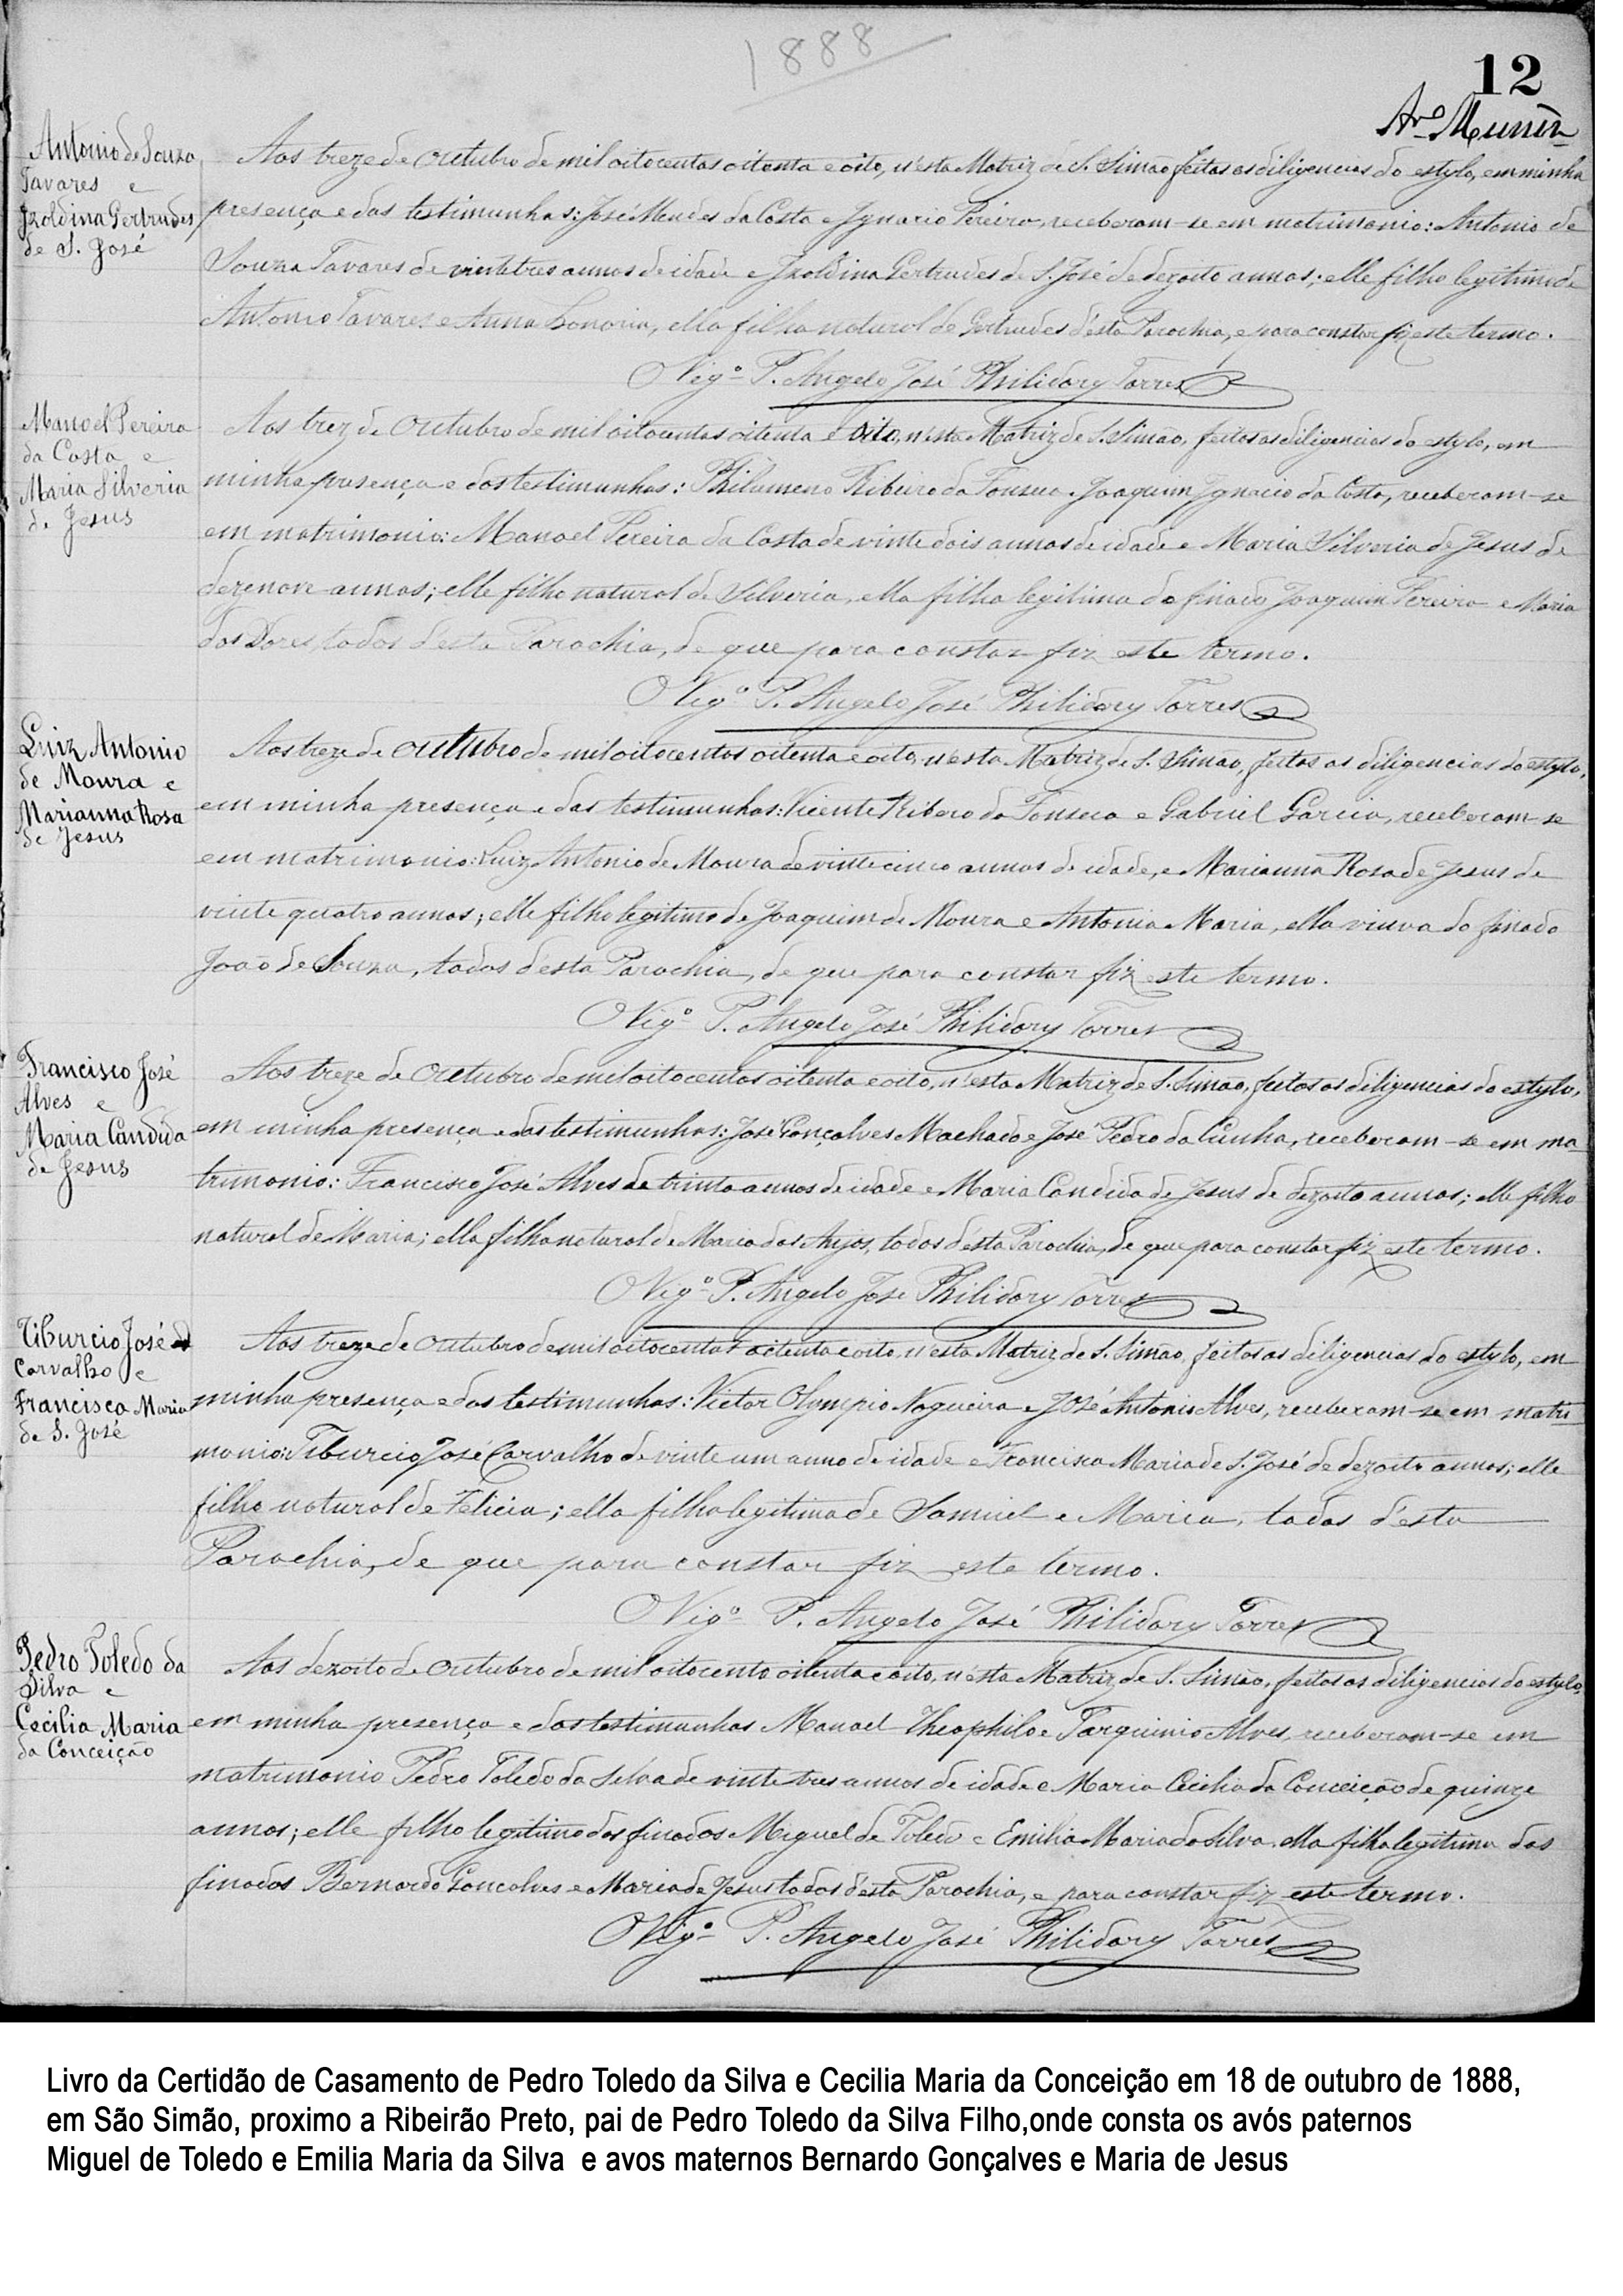 1888
12
Antonio de Souza
Tavares e
Izoldina Gertrudes
de S. José
Aos treze de Outubro de mil oitocentos oitenta e oito, n'esta Matriz de S. Simão feitas as diligencias do estylo, em minha
presença e das testimunhas: José Mendes da Costa e Ignacio Pereira, receberam-se em matrimonio: Antonio de
Souza Tavares de vinte tres annos de idade e Izoldina Gertrudes de S. José de dezoito annos; elle filho legitimo de
Antonio Tavares e Anna Honoria, ella filha natural de Gertrudes d'esta Parochia, e para constar fiz este termo.
O Vigº P. Angelo José Philidory Torres
Manoel Pereira
da Costa e
Maria Silveria
de Jesus
Aos trez de Outubro de mil oitocentos oitenta e oito, n'esta Matriz de S. Simão, feitas as diligencias do estylo, em
minha presença e das testimunhas: Philomeno Ribeiro da Fonseca e Joaquim Ignacio da Costa, receberam-se
em matrimonio: Manoel Pereira da Costa de vinte dois annos de idade e Maria Silveria de Jesus de
dezenove annos; elle filho natural de Silveria, ella filha legitima do finado Joaquim Pereira e Maria
das Dores, todos d'esta Parochia, de que para constar fiz este termo.
O Vigº P. Angelo José Philidory Torres
Luiz Antonio
de Moura e
Marianna Rosa
de Jesus
Aos treze de Outubro de mil oitocentos oitenta e oito, n'esta Matriz de S. Simão, feitas as diligencias do estylo,
em minha presença e das testimunhas: Vicente Ribero da Fonseca e Gabriel Garcia, receberam-se
em matrimonio: Luiz Antonio de Moura de vinte cinco annos de idade, e Marianna Rosa de Jesus de
vinte quatro annos; elle filho legitimo de Joaquim de Moura e Antonia Maria, ella viuva do finado
João de Souza, todos d'esta Parochia, de que para constar fiz este termo.
O Vigº P. Angelo José Philidory Torres
Francisco José
Alves e
Maria Candida
de Jesus
Aos treze de Outubro de mil oitocentos oitenta e oito, n'esta Matriz de S. Simão, feitas as diligencias do estylo,
em minha presença e das testimunhas: José Gonçalves Machado e José Pedro da Cunha, receberam-se em ma-
trimonio: Francisco José Alves de trinta annos de idade e Maria Candida de Jesus de dezoito annos; elle filho
natural de Maria; ella filha natural de Maria dos Anjos, todos d'esta Parochia, de que para constar fiz este termo.
O Vigº P. Angelo José Philidory Torres
Tiburcio José
Carvalho e
Francisca Maria
de S. José
Aos treze de Outubro de mil oitocentos oitenta e oito, n'esta Matriz de S. Simão, feitas as diligencias do estylo, em
minha presença e das testimunhas: Victor Olympio Nogueira e José Antonio Alves, receberam-se em matri-
monio: Tiburcio José Carvalho de vinte um anno de idade e Francisca Maria de S. José de dezoito annos; elle
filho natural de Felicia; ella filha legitima de Samuel e Maria, todos d'esta
Parochia, de que para constar fiz este termo.
O Vigº P. Angelo José Philidory Torres
Pedro Toledo da
Silva e
Cecilia Maria
da Conceição
Aos dezoito de Outubro de mil oitocento oitenta e oito, n'esta Matriz de S. Simão, feitas as diligencias do estylo,
em minha presença e das testimunhas Manoel Theophilo e Tarquinio Alves, receberam-se em
matrimonio Pedro Toledo da Silva de vinte tres annos de idade e Maria Cecilia da Conceição de quinze
annos; elle filho legitimo dos finados Miguel de Toledo e Emilia Maria da Silva, ella filha legitima dos
finados Bernardo Goncalves e Maria de Jesus todos d'esta Parochia, e para constar fiz este termo.
O Vigº P. Angelo José Philidory Torres
Livro da Certidão de Casamento de Pedro Toledo da Silva e Cecilia Maria da Conceição em 18 de outubro de 1888,
em São Simão, proximo a Ribeirão Preto, pai de Pedro Toledo da Silva Filho,onde consta os avós paternos
Miguel de Toledo e Emilia Maria da Silva e avos maternos Bernardo Gonçalves e Maria de Jesus